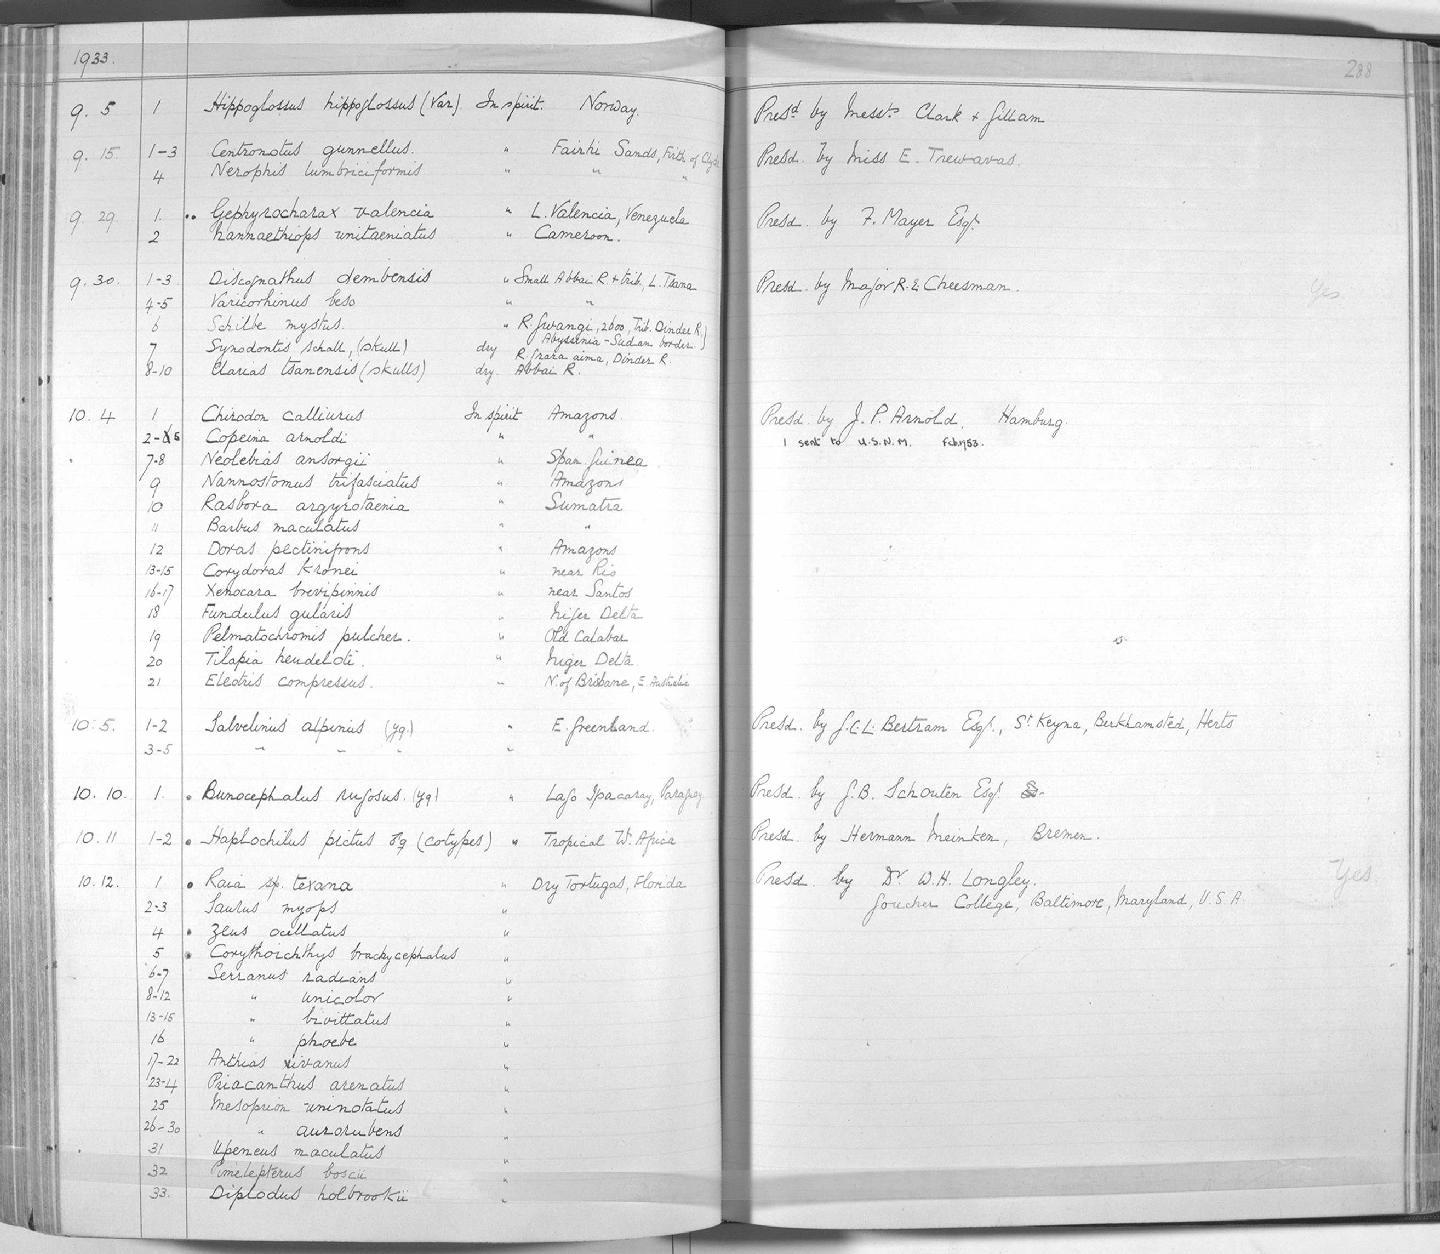 1933.
288
9. 5 1 Hippoglossus hippoglossus (Var) In spirit. Norway. Presd by Messrs Clark & Gillam
9. 15 1-3 Centronotus gunnellus. " Fairhi Sands, Firth of Clyde Presd. by Miss E. Trewavas.
4 Nerophis lumbriciformis " " "
9. 29 1. Gephyrocharax valencia " L. Valencia, Venezuela Presd. by F. Mayer Esq.
2 Nannaethiops unitaeniatus " Cameroon.
9. 30. 1-3 Discognathus dembensis " Small Abbai R. & trib. L. Tsana Presd. by Major R. E. Cheesman. Yes
4-5 Varicorhinus beso " "
6 Schilbe mystus. " R. Gwangi, 2600, Trib. Dinder R.)
Abyssinia-Sudan border.
7 Synodontis schall, (skull) dry R. grara aima, Dinder R.
8-10 Clarias tsanensis (skulls) dry. Abbai R.
10. 4 1 Chirodon calliurus In spirit Amazons Presd. by J. P. Arnold, Hamburg.
2-6 Copeina arnoldi " " 1 sent to U.S.N.M.
7-8 Neolebias ansorgii " Span. Guinea
9 Nannostomus trifasciatus " Amazons
10 Rasbora argyrotaenia " Sumatra
11 Barbus maculatus " "
12 Doras pectinifrons " Amazons
13-15 Corydoras kronei " near Rio
16-17 Xenocara brevipinnis " near Santos
18 Fundulus gularis " Niger Delta
19 Pelmatochromis pulcher. " Old Calabar
20 Tilapia heudeloti. " Niger Delta
21 Eleotris compressus. " N. of Brisbane, E. Australia
10. 5. 1-2 Salvelinus alpinus (yg.) " E. Greenland. Presd. by G.C.L. Bertram Esq., St Keyna, Berkhamsted, Herts
3-5 " " " "
10. 10. 1. Bunocephalus rugosus. (yg) " Lago Ipacaray, Paraguay Presd. by G. B. Schouten Esq.
10. 11 1-2 Haplochilus pictus ♂♀ (cotypes) " Tropical W. Africa Presd by Hermann Meinken, Bremen.
10. 12. 1 Raia sp. texana " Dry Tortugas, Florida Presd. by Dr W. H. Longley. Yes
2-3 Saurus myops " Goucher College, Baltimore, Maryland, U.S.A.
4 Zeus ocellatus "
5 Corythoichthys brachycephalus "
6-7 Serranus radians "
8-12 " unicolor "
13-15 " bivittatus "
16 " phoebe "
17-22 Anthias vivanus "
23-4 Priacanthus arenatus "
25 Mesoprion uninotatus "
26-30 " aurorubens "
31 Upeneus maculatus "
32 Pimelepterus boscii "
33. Diplodus holbrookii "